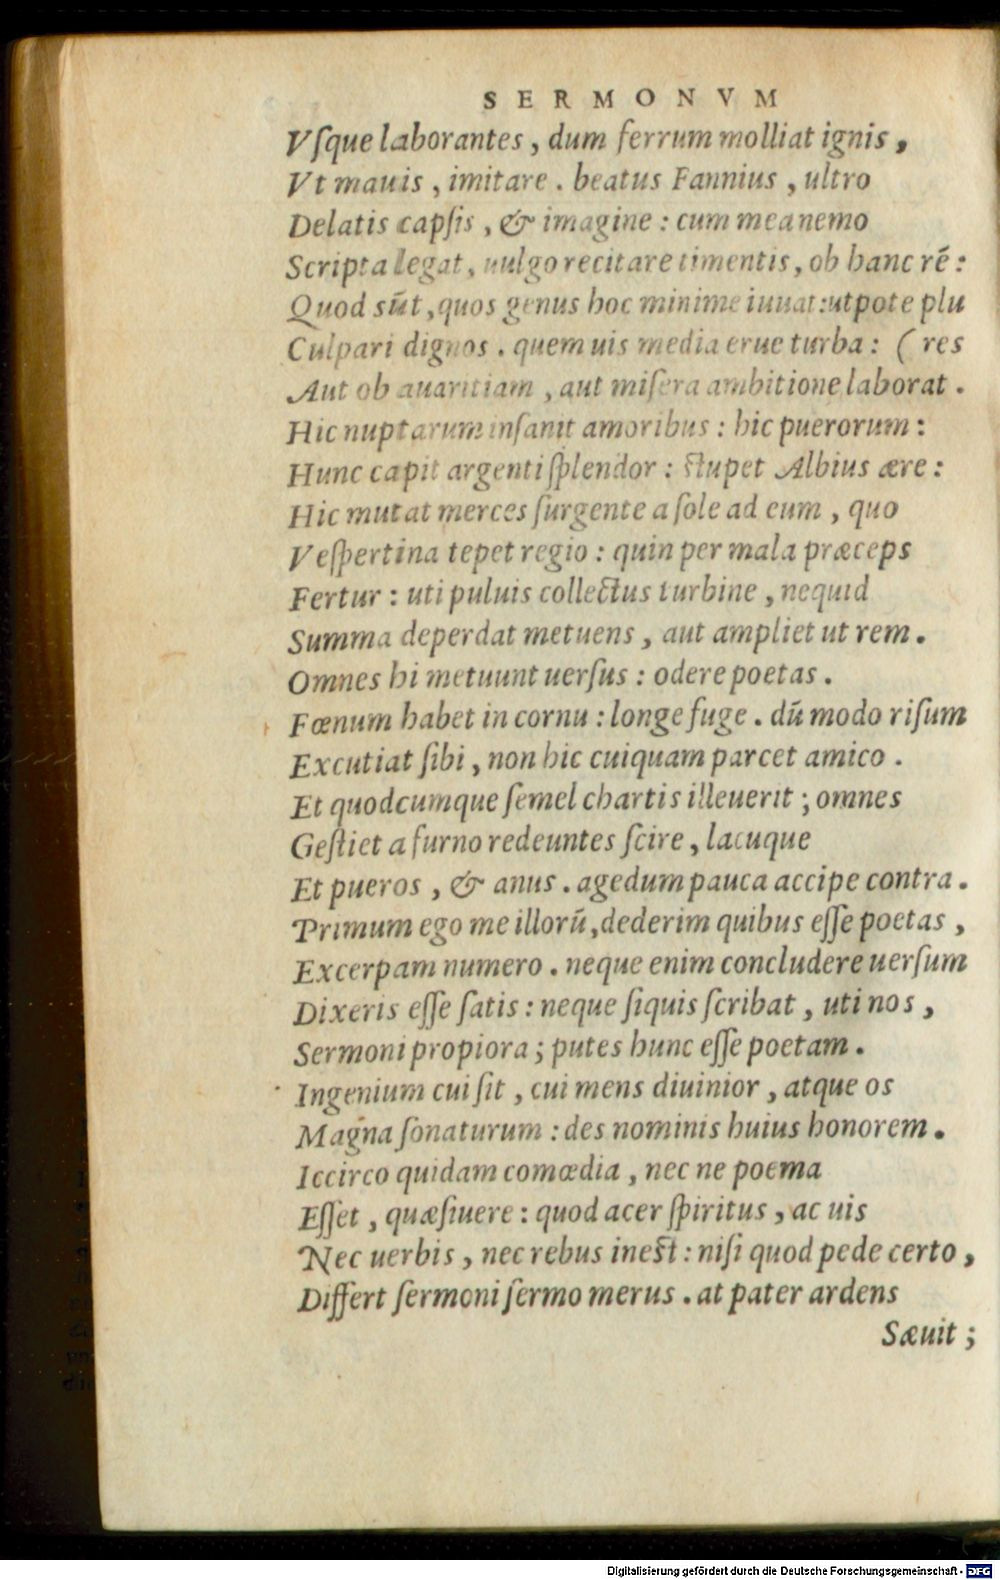 SERMONVM
Vſque laborantes, dum ferrum molliat ignis,
Vt mauis, imitare. beatus Fannius, ultro
Delatis capſis, & imagine: cum mea nemo
Scripta legat, uulgo recitare timentis, ob hanc rē:
Quod sūt, quos genus hoc minime iuuat: utpote plu
Culpari dignos. quem uis media erue turba: (res
Aut ob auaritiam, aut miſera ambitione laborat.
Hic nuptarum inſanit amoribus: hic puerorum:
Hunc capit argenti ſplendor: ſtupet Albius ære:
Hic mutat merces ſurgente a ſole ad eum, quo
Veſpertina tepet regio: quin per mala præceps
Fertur: uti puluis collectus turbine, nequid
Summa deperdat metuens, aut ampliet ut rem.
Omnes hi metuunt uerſus: odere poetas.
Fœnum habet in cornu: longe fuge. dū modo riſum
Excutiat ſibi, non hic cuiquam parcet amico.
Et quodcumque ſemel chartis illeuerit; omnes
Geſtiet a furno redeuntes ſcire, lacuque
Et pueros, & anus. agedum pauca accipe contra.
Primum ego me illorū, dederim quibus eſſe poetas,
Excerpam numero. neque enim concludere uerſum
Dixeris eſſe ſatis: neque ſiquis ſcribat, uti nos,
Sermoni propiora; putes hunc eſſe poetam.
Ingenium cui ſit, cui mens diuinior, atque os
Magna ſonaturum: des nominis huius honorem.
Iccirco quidam comœdia, nec ne poema
Eſſet, quæſiuere: quod acer ſpiritus, ac uis
Nec uerbis, nec rebus ineſt: niſi quod pede certo,
Differt ſermoni ſermo merus. at pater ardens
Sæuit;
Digitalisierung gefördert durch die Deutsche Forschungsgemeinschaft - DFG